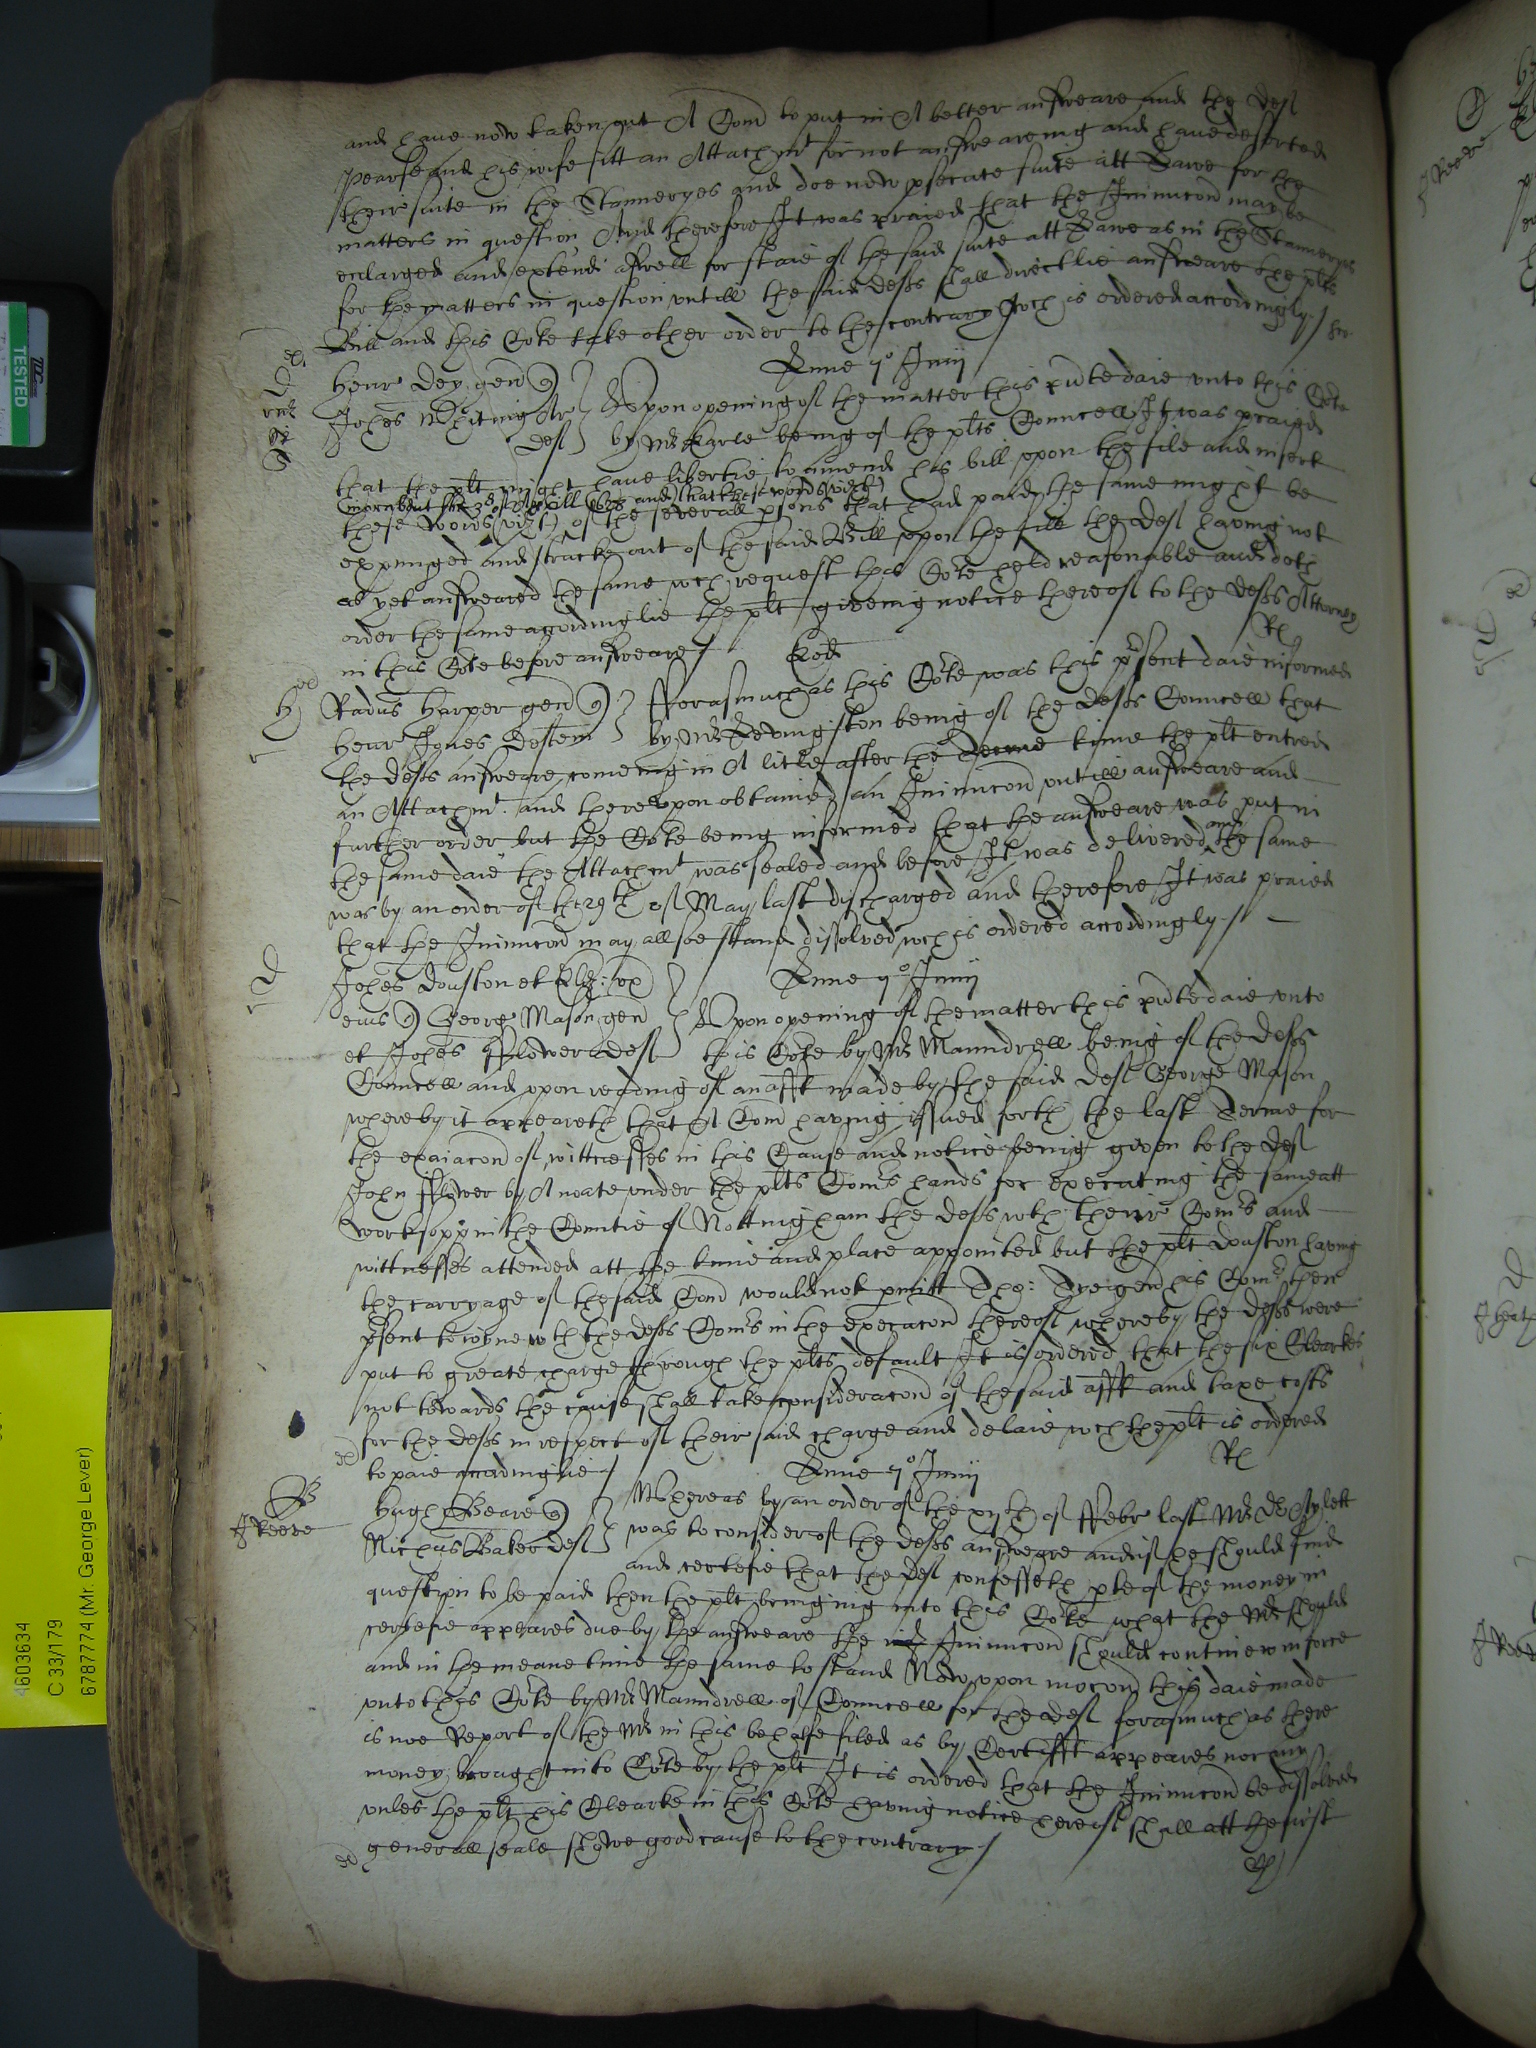 and have now taken out A Com to put in A better answeare and the def
Pearse and his wife sitt an Attachmt for not answeareing and have deserted
their suite in the Stanneryes and doe now psecute suite att Lawe for the
matters in question And therefore It was praied that the Iniunccon may be
enlarged and extend aswell for staie of the said suite att Lawe as in the Stanneryes
for the matters in question untill the said defts shall directlie answeare the plts
Bill and this Corte take other order to the contrary wch is ordered accordingly
Lune 7o Junij
Henr Dey gen
Johes Whiting Ar
def
Upon opening of the matter this pnte daie unto this Corte
by Mr Earle being of the plts Councell It was praied
that the plt might have libertie to amend his bill upon the file and insert
these words (vizt) of the severall psons that had paid the same might be
expunged and strucke out of the said Bill upon the file the def having not
as yet answeared the same wch request this Corte held reasonable and doth
order the same accordinglie the plt giveing notice thereof to the defts Attorney
in this Corte before answeare
Eod
Radus Harper gen
Henr Jques
Forasmuch as this Corte was this psent daie informed
by Mr being of the defts Councell that
the defts answeare comeing in A litle after the Terme time the plt entred
an Attachmt and thereupon obtained an Iniunccon untill answeare and
further order but the Corte being informed that the answeare was put in
the same daie the Attachmt was sealed and before It was delivered and the same
was by an order of the 29th of May last discharged and therefore It was praied
that the Iniunccon may allsoe stand dissolved wch is ordered accordingly
Lune 7o Junij
Johes Douston et Eliz: ux
eius George Mason gen
et Johes Flower def
Upon opening of the matter this pnte daie unto
this Corte by Mr Maundrell being of the defts
Councell and upon reading of an afft made by the said def George Mason
whereby it appeareth that A Com having issued forth the last Terme for
the exaiacon of wittnesses in this Cause and notice being given to the def
John Flower by A noate under the plts Comrs hands for executing the same att
Worksopp in the Countie of Nottingham the defts wth their Comrs and
wittnesses attended att the time and place appointed but the plt Douston having
the carryage of the said Com would not pmitt Tho: gen his Comr then
psent to ioyne wth the defts Comrs in the execucon thereof whereby the defts were
put to greate charge through the plts default It is ordered that the six Clearkes
not towards the cause shall take consideracon of the said afft and taxe costs
for the defts in respect of their said charge and delaie wch the plt is ordered
to paie accordinglie
Lune 7o Junij
J Keene
Hugh Beare
Nichus Baker def
Whereas by an order of the of Febr last Mr
was to consider of the defts answeare and if he should find
and certefie that the def confesseth pte of the money in
question to be paid then the plt bringing into this Corte what the Mr should
certefie appeares due by the answeare the Iniunccon should continew in force
and in the meane time the same to stand Now upon mocon this daie made
unto this Corte by Mr Maundrell of Councell for the def forasmuch as there
is noe Report of the Mr in this behalfe filed as by Certifft appeares nor any
money brought into Corte by the plt It is ordered that the Iniunccon be dissolved
unles the plt his Clearke in this Corte having notice hereof shall att the first
generall seale shewe good cause to the contrary
TESTED
4603634
C 33/179
6787774 (Mr. George Lever)